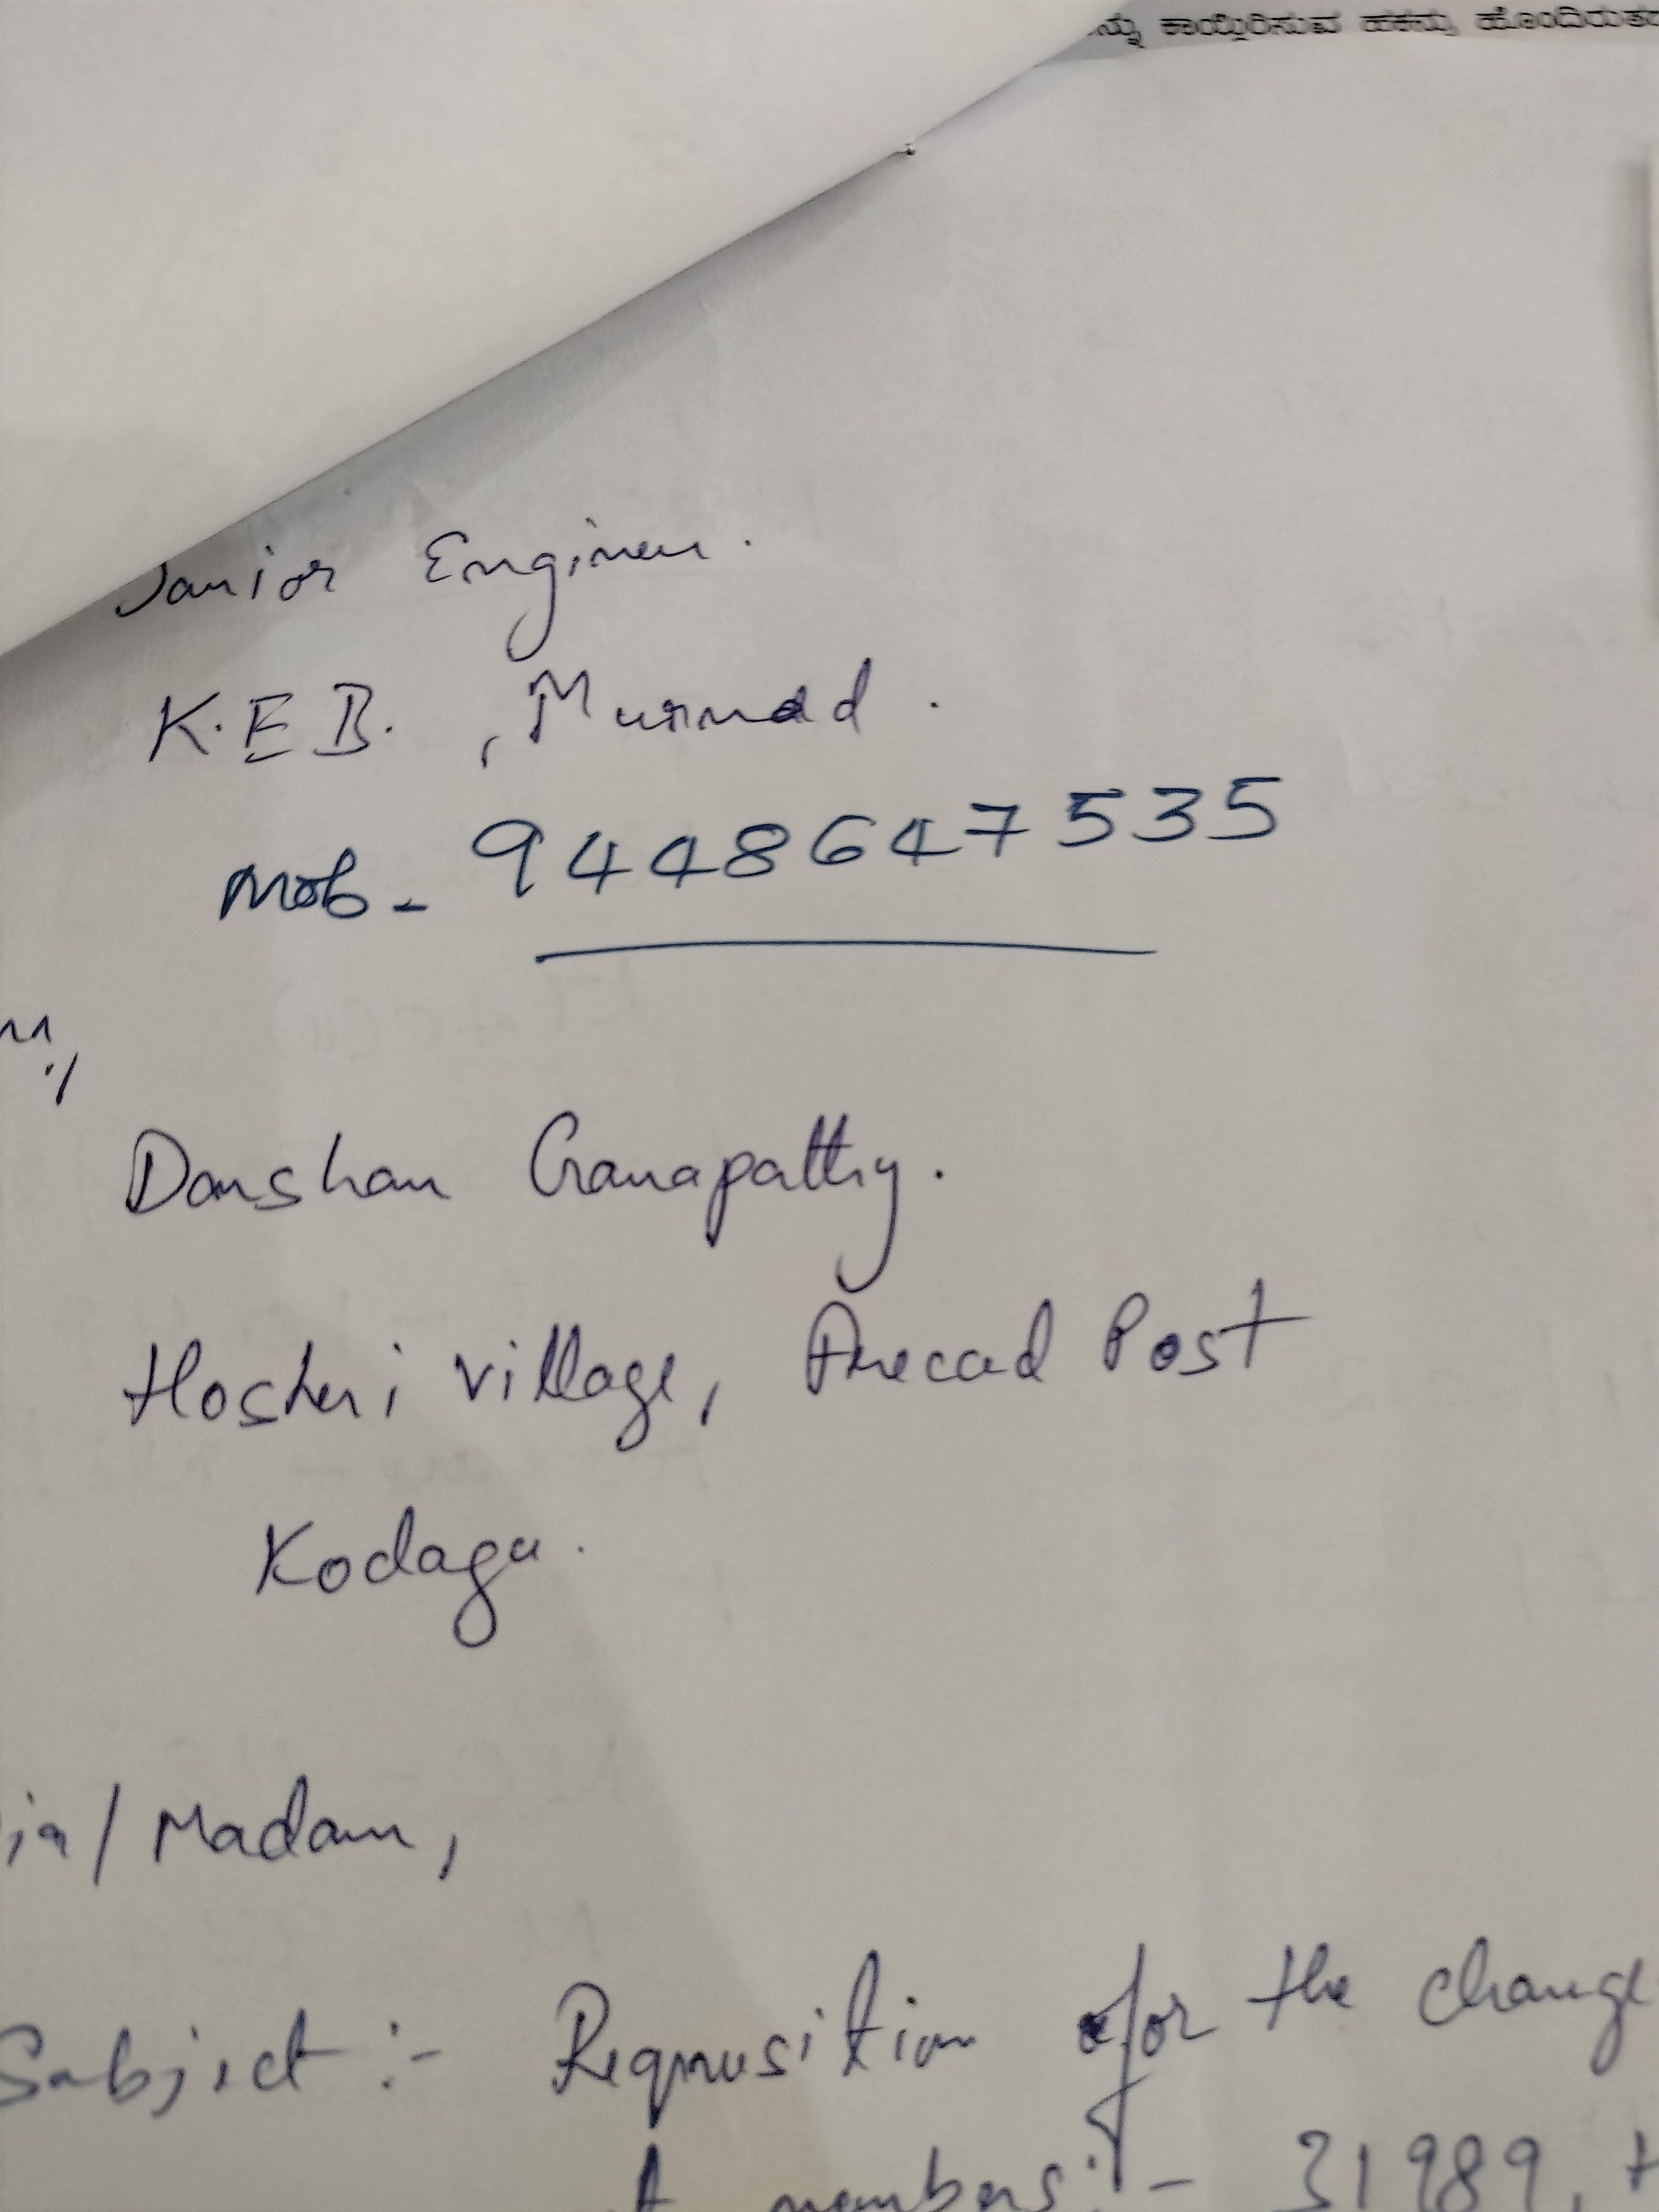 ಕಾಯ್ದಿರಿಸುವ ಹಕ್ಕನ್ನು
Junior Engineer.
K.E.B. , Murnad.
Mob - 9448647535
Darshan Ganapathy.
Hosheri village, Post
Kodagu.
/ Madam,
Subject :- Requusition for the change
numbers :- 31989,